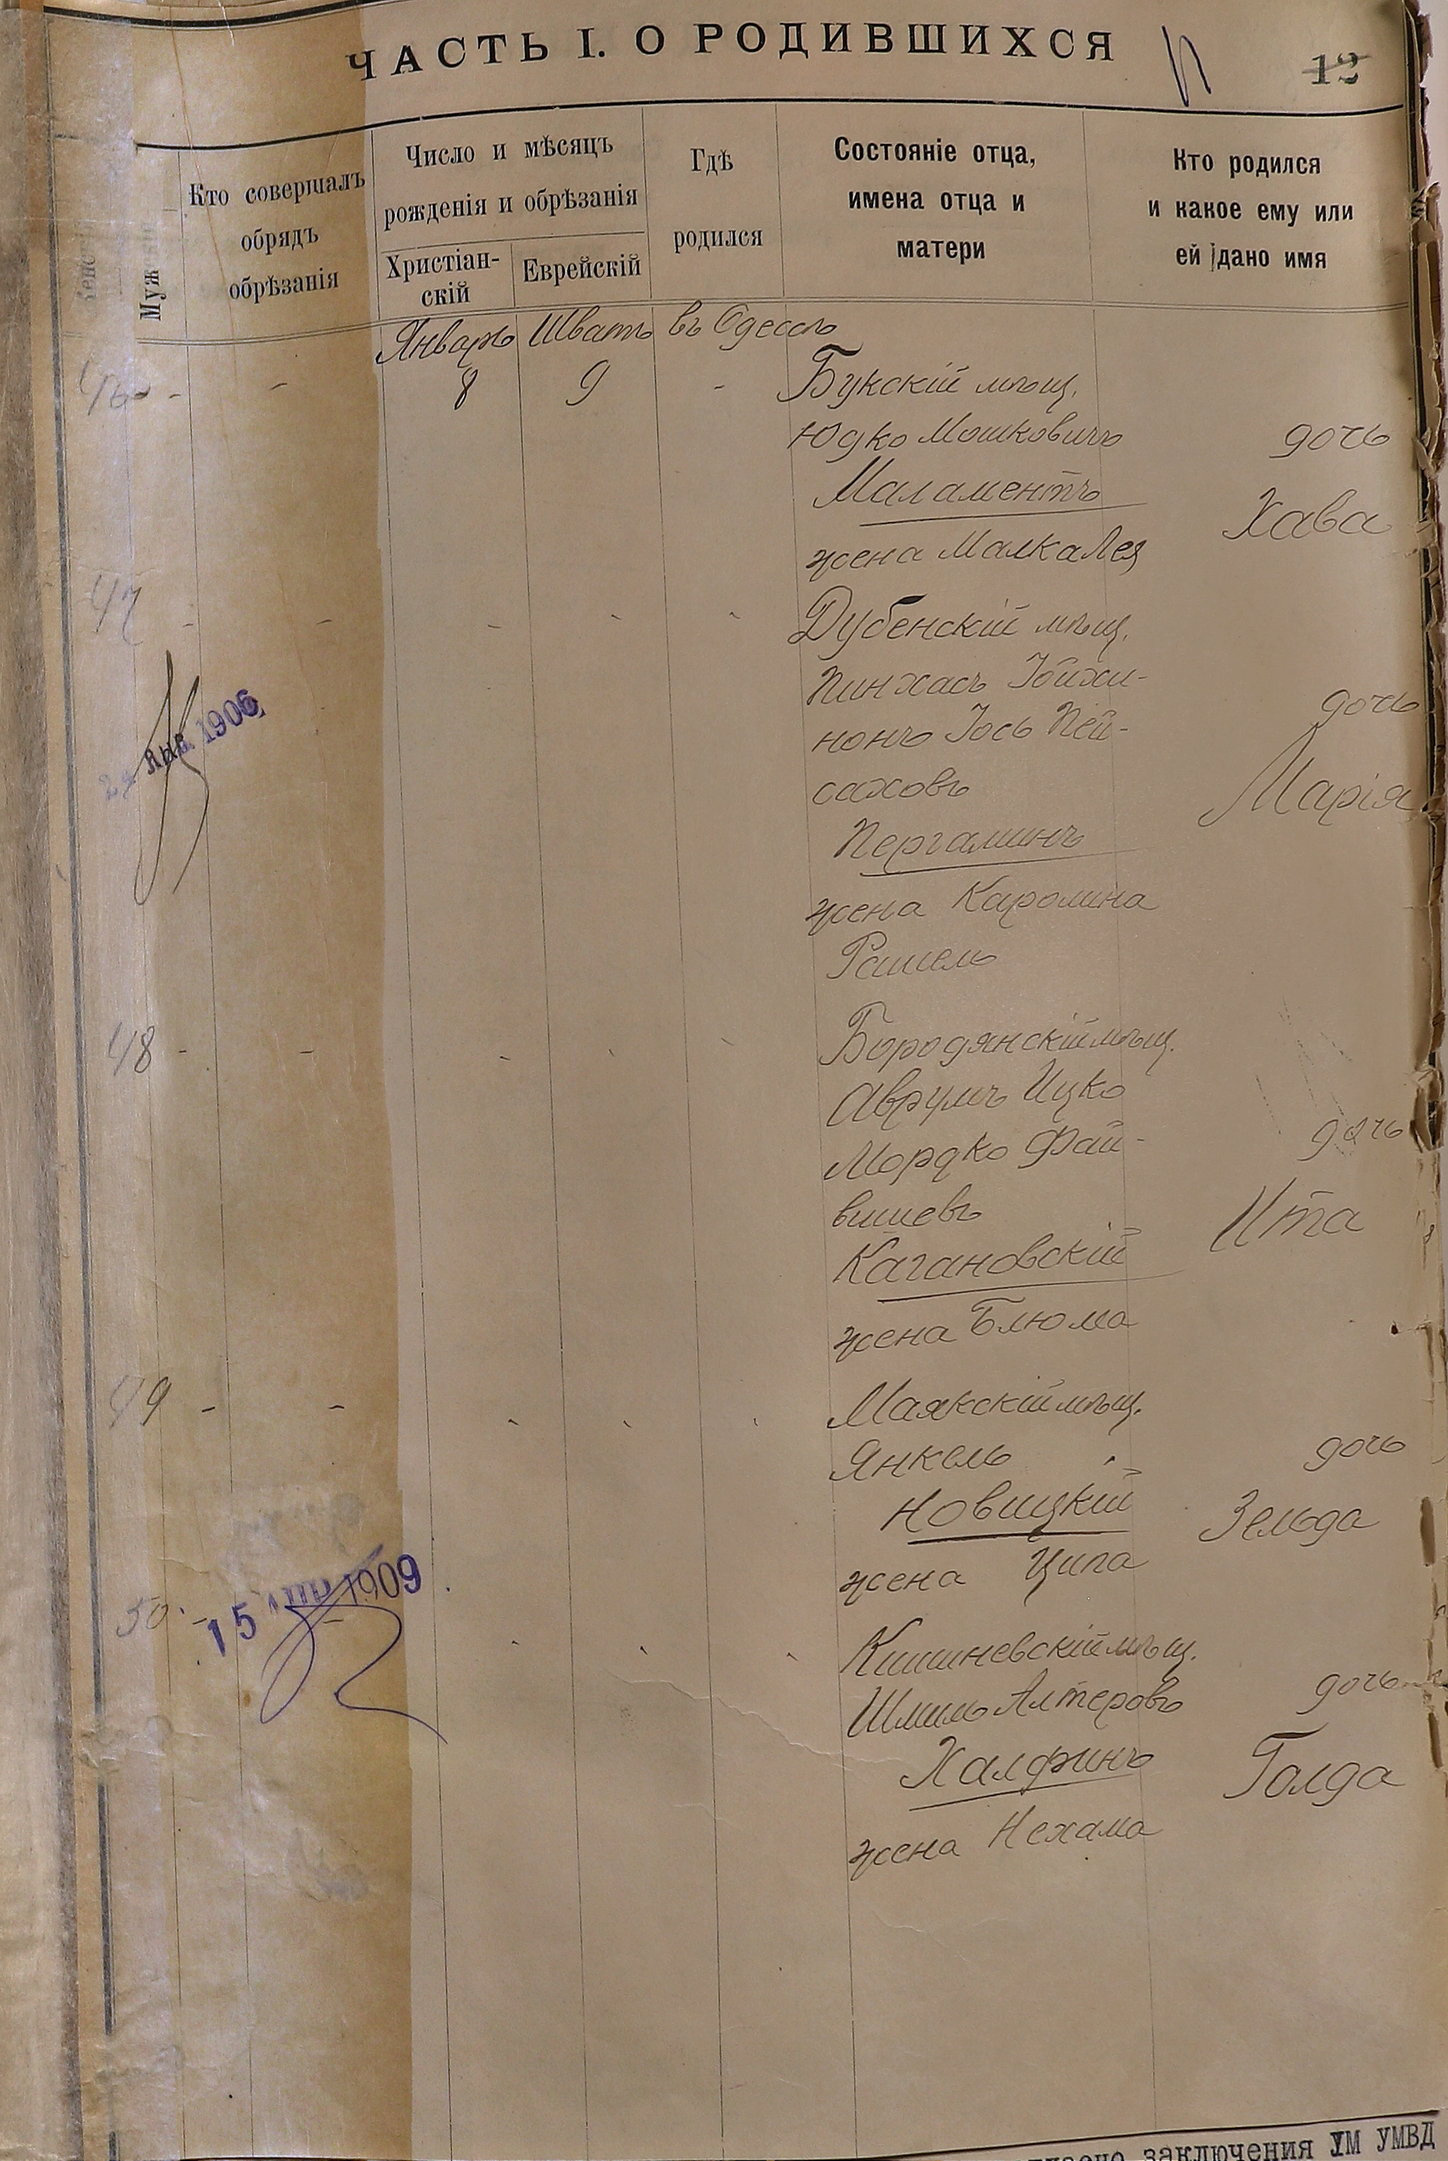 ЧАСТЬ I. О РОДИВШИХСЯ
12
Женскій
Мужскій
Кто совершалъ
обрядъ
обрѣзанія
Число и мѣсяцъ
рожденія и обрѣзанія
Христіан-
скій
Еврейскій
Гдѣ
родился
Состояніе отца,
имена отца и
матери
Кто родился
и какое ему или
ей дано имя
Январь Шватъ въ Одессѣ
46 - - 8 9 - Букскій мѣщ.
Юдко Мошковичъ дочь
Маламентъ Хава
жена Малка Лея
47 Дубенскій мѣщ.
Пинхасъ Іойхи-
нонъ Іось Пей- дочь
саховъ Марія
Пергаминъ
жена Каролина
Рашель
Янв. 1906
48 - - Бородянскій мѣщ.
Аврумъ Ицко
Мордко Фай- дочь
вишевъ Ита
Кагановскій
жена Блюма
49 - - Маякскій мѣщ.
Янкель дочь
Новицкій Зельда
жена Ципа
15 АПР 1909
50 Кишиневскій мѣщ.
Шмиль Алтеровъ дочь
Халфинъ Голда
жена Нехама
заключения УМ УМВД